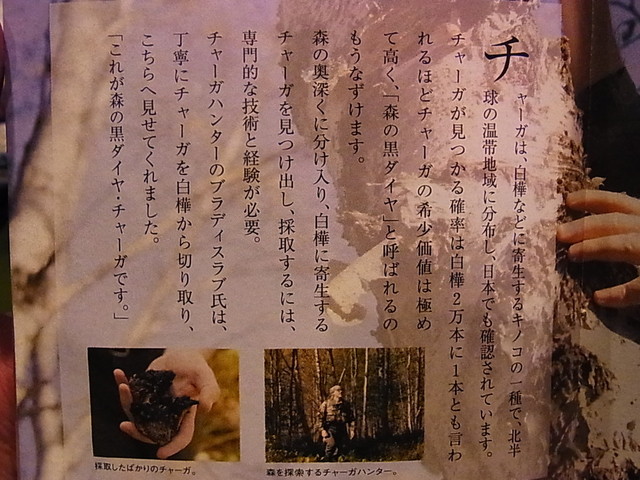 チャーガは、白樺などに寄生するキノコの一種で、北半
球の温帯地域に分布し、日本でも確認されています。
チャーガが見つかる確率は白樺2万本に1本とも言わ
れるほどチャーガの希少価値は極め
て高く、「森の黒ダイヤ」と呼ばれるの
もうなずけます。
森の奥深くに分け入り、白樺に寄生する
チャーガを見つけ出し、採取するには、
専門的な技術と経験が必要。
チャーガハンターのブラディスラブ氏は、
丁寧にチャーガを白樺から切り取り、
こちらへ見せてくれました。
「これが森の黒ダイヤ・チャーガです。」
森を探索するチャーガハンター。
採取したばかりのチャーガ。